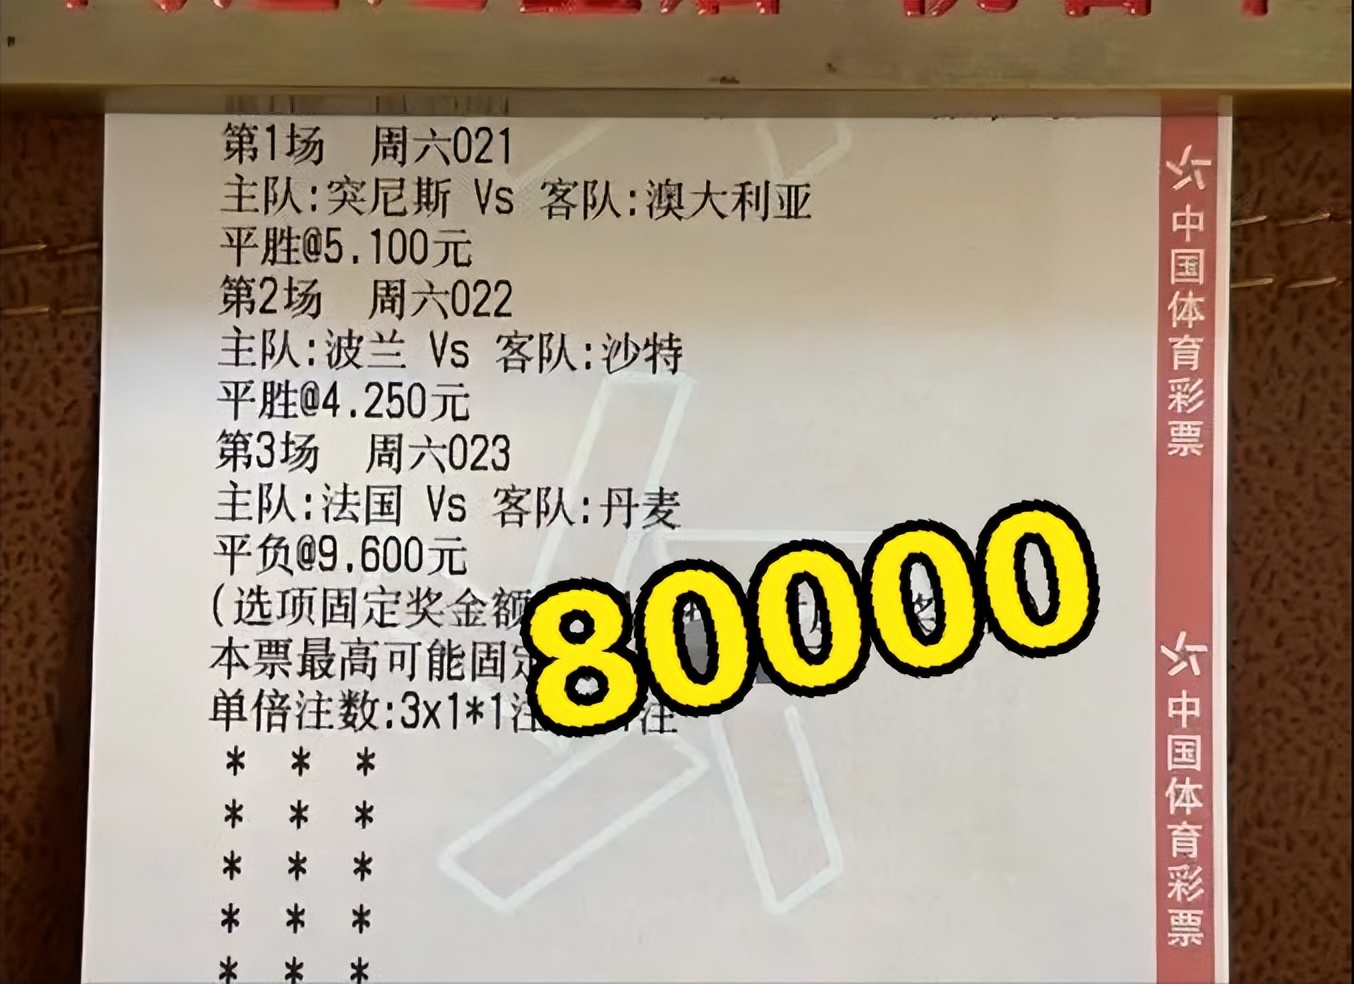 第1场 周六021
主队:突尼斯 Vs 客队:澳大利亚
平胜@5.100元
第2场 周六022
主队:波兰 Vs 客队:沙特
平胜@4.250元
第3场 周六023
主队:法国 Vs 客队:丹麦
平负@9.600元
(选项固定奖金额
本票最高可能固定
单倍注数:3x1*1注 注
80000
* * *
* * *
* * *
* * *
* * *
中国体育彩票
中国体育彩票